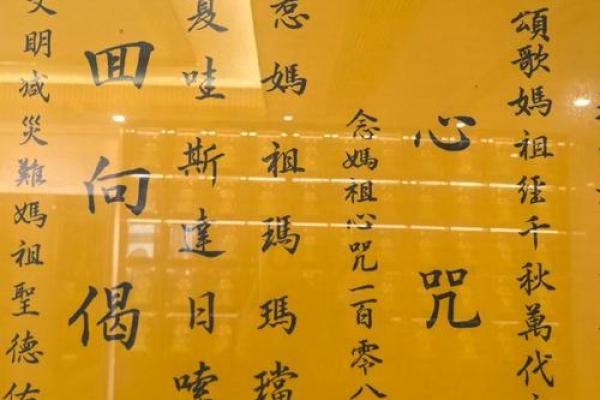 頌歌媽祖經千秋萬代
心咒
念媽祖心咒一百零八
媽祖瑪瑪璫
哇斯達日嗦
囬向偈
明滅災難媽祖聖德佑